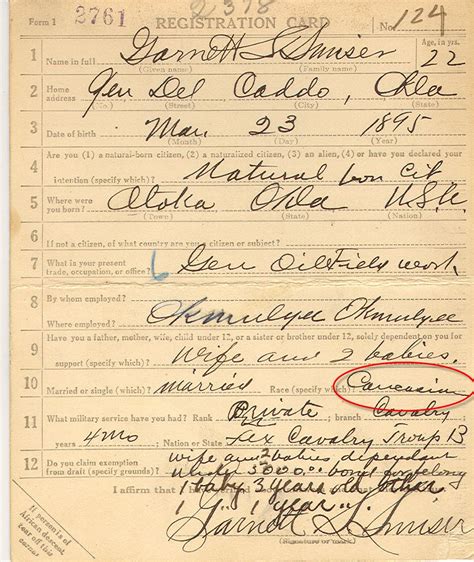 2378
Form 1 2761 REGISTRATION CARD No. 124
1 Name in full Garnett S Smiser Age, in yrs. 22
(Given name) (Family name)
2 Home address Gen Del Caddo, Okla
(No.) (Street) (City) (State)
3 Date of birth Mar. 23 1895
(Month) (Day) (Year)
4 Are you (1) a natural-born citizen, (2) a naturalized citizen, (3) an alien, (4) or have you declared your
intention (specify which)? Natural born Cit
5 Where were you born? Atoka Okla U.S.A.
(Town) (State) (Nation)
6 If not a citizen, of what country are you a citizen or subject?
7 What is your present trade, occupation, or office? 6 Gen Oil Field work
8 By whom employed?
Where employed? Okmulgee Okmulgee
9 Have you a father, mother, wife, child under 12, or a sister or brother under 12, solely dependent on you for
support (specify which)? wife and 2 babies.
10 Married or single (which)? married Race (specify which)? Caucasian
11 What military service have you had? Rank Private ; branch Cavalry
4 mo ; Nation or State Tex Cavalry Troup B
12 Do you claim exemption from draft (specify grounds)? wife and 2 babies dependant
I affirm that I have
1 baby 3 years old other
1 " 1 year "
Garnett S Smiser
(Signature or mark)
If person is of
African descent,
tear off this
corner